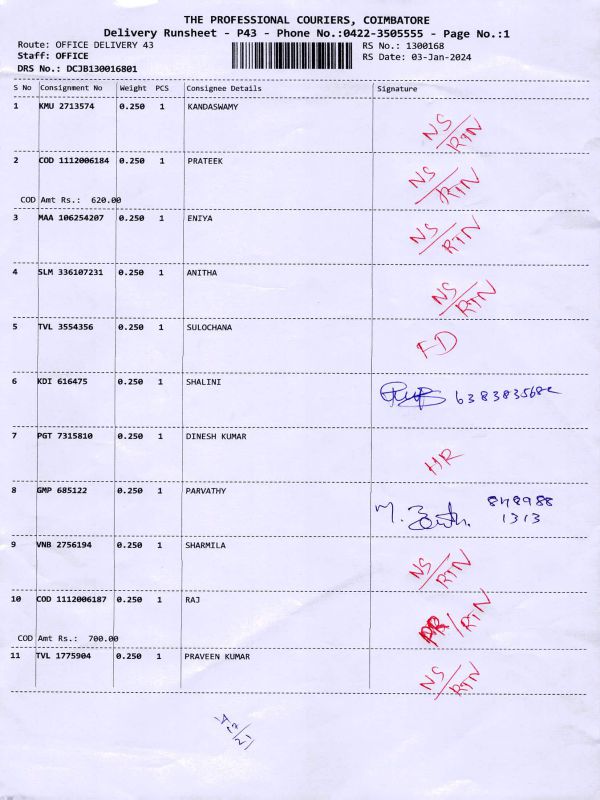 THE PROFESSIONAL COURIERS, COIMBATORE
Delivery Runsheet - P43 - Phone No.:0422-3505555 - Page No.:1
Route: OFFICE DELIVERY 43 RS No.: 1300168
Staff: OFFICE RS Date: 03-Jan-2024
DRS No.: DCJB130016801
S No Consignment No Weight PCS Consignee Details Signature
1 KMU 2713574 0.250 1 KANDASWAMY NS/RTN
2 COD 1112006184 0.250 1 PRATEEK NS/RTN
COD Amt Rs.: 620.00
3 MAA 106254207 0.250 1 ENIYA NS/RTN
4 SLM 336107231 0.250 1 ANITHA NS/RTN
5 TVL 3554356 0.250 1 SULOCHANA FD
6 KDI 616475 0.250 1 SHALINI
7 PGT 7315810 0.250 1 DINESH KUMAR HR
8 GMP 685122 0.250 1 PARVATHY
1313
9 VNB 2756194 0.250 1 SHARMILA NS/RTN
10 COD 1112006187 0.250 1 RAJ /RTN
COD Amt Rs.: 700.00
11 TVL 1775904 0.250 1 PRAVEEN KUMAR NS/RTN